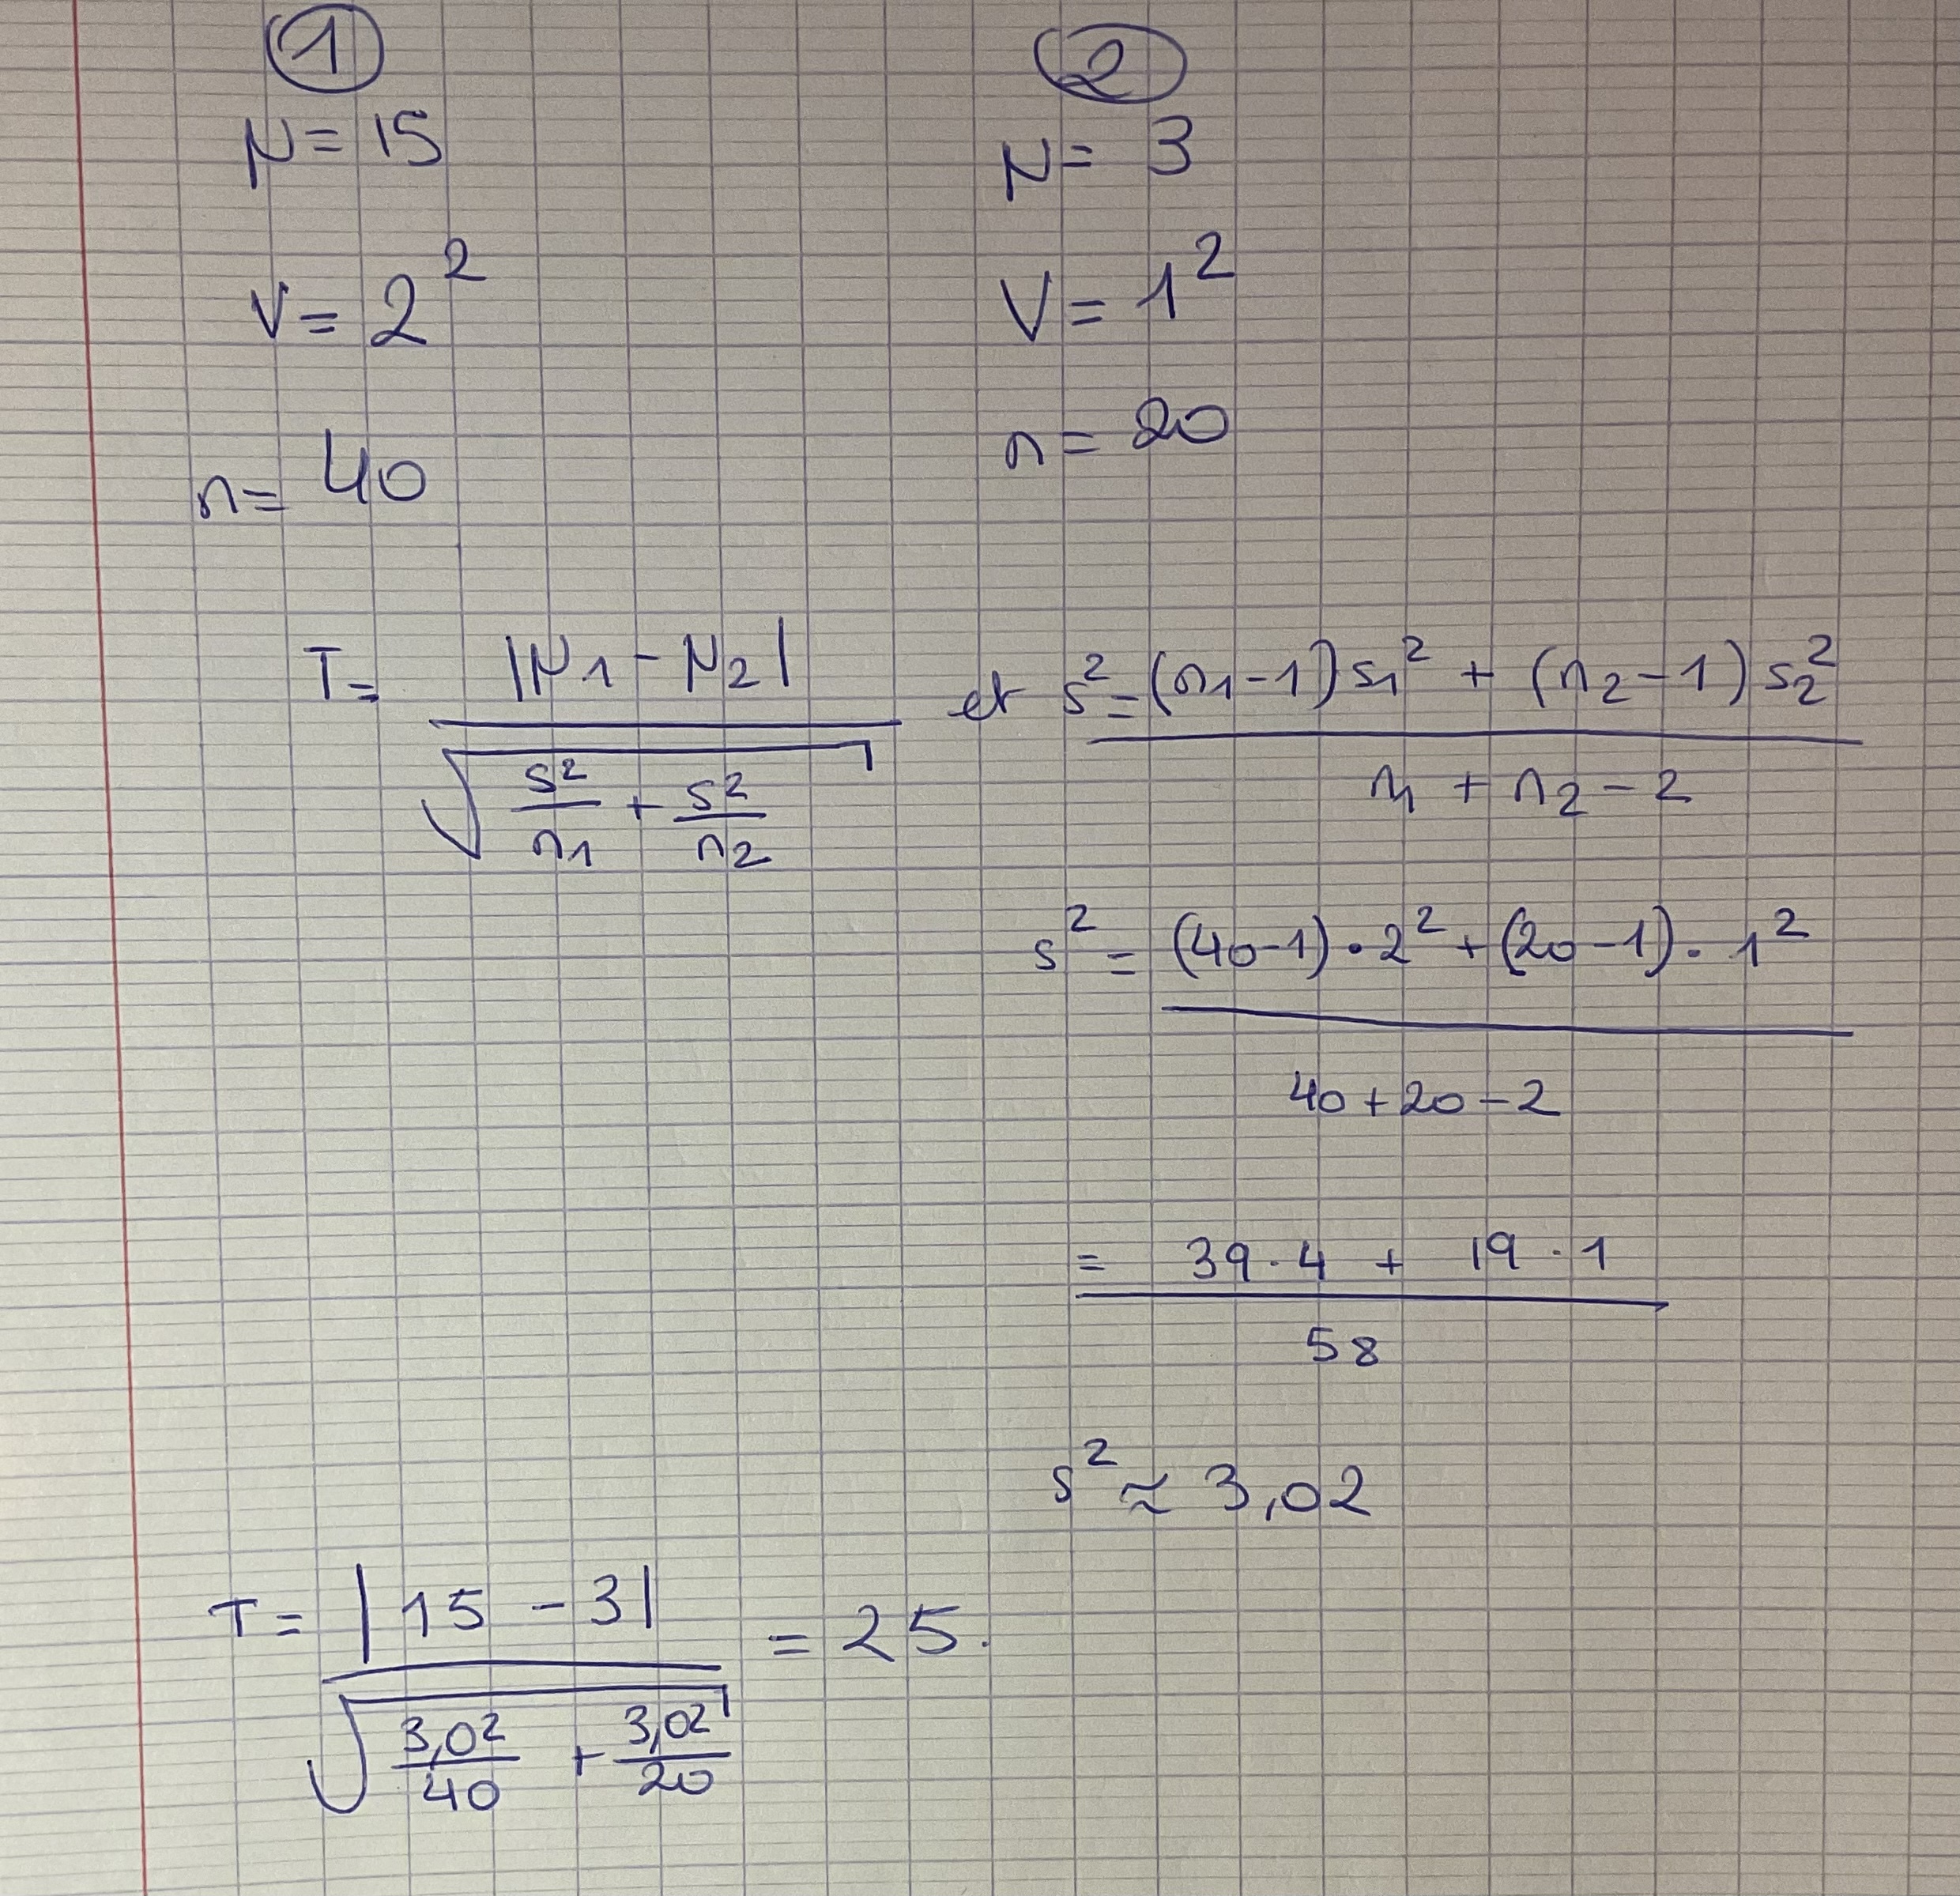 ① ②
μ = 15 μ = 3
V = 2² V = 1²
n = 40 n = 20
T = |μ₁ - μ₂| / √(s²/n₁ + s²/n₂) et s² = ((n₁-1) s₁² + (n₂-1) s₂²) / (n₁ + n₂ - 2)
s² = ((40-1) · 2² + (20-1) · 1²) / (40 + 20 - 2)
= (39 · 4 + 19 · 1) / 58
s² ≈ 3,02
T = |15 - 3| / √(3,02/40 + 3,02/20) = 25.